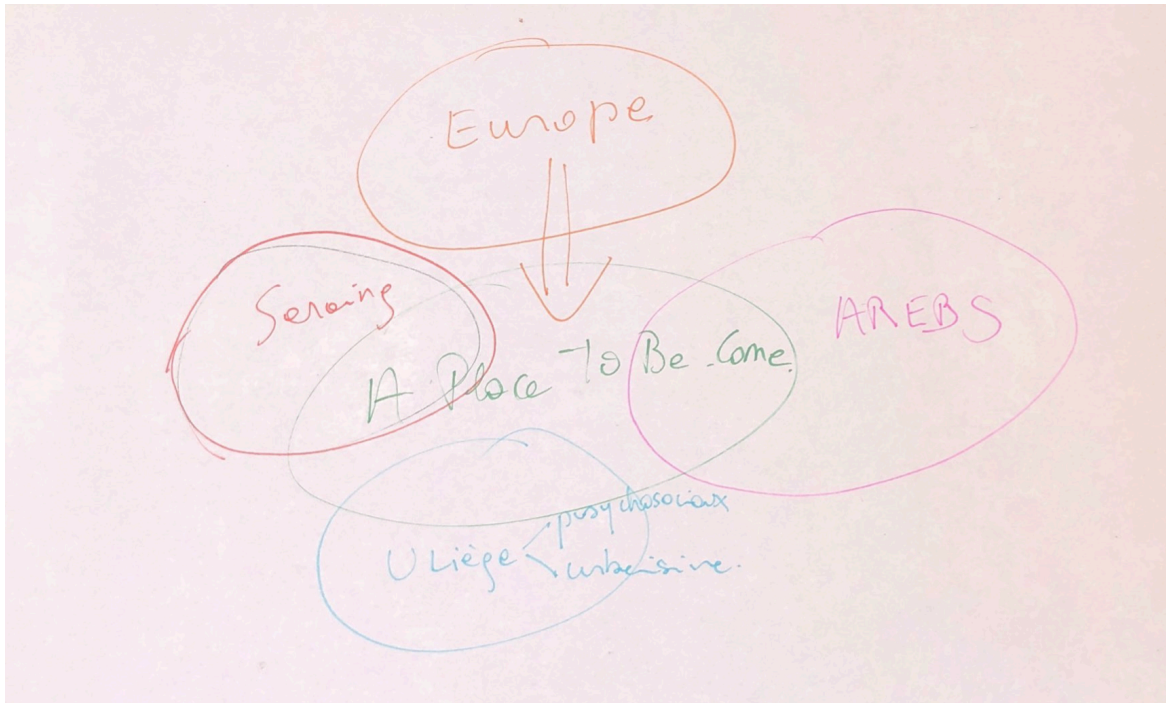 Europe
Seraing
AREBS
A Place To Be Come.
ULiège
psychosociaux
urbanisme.